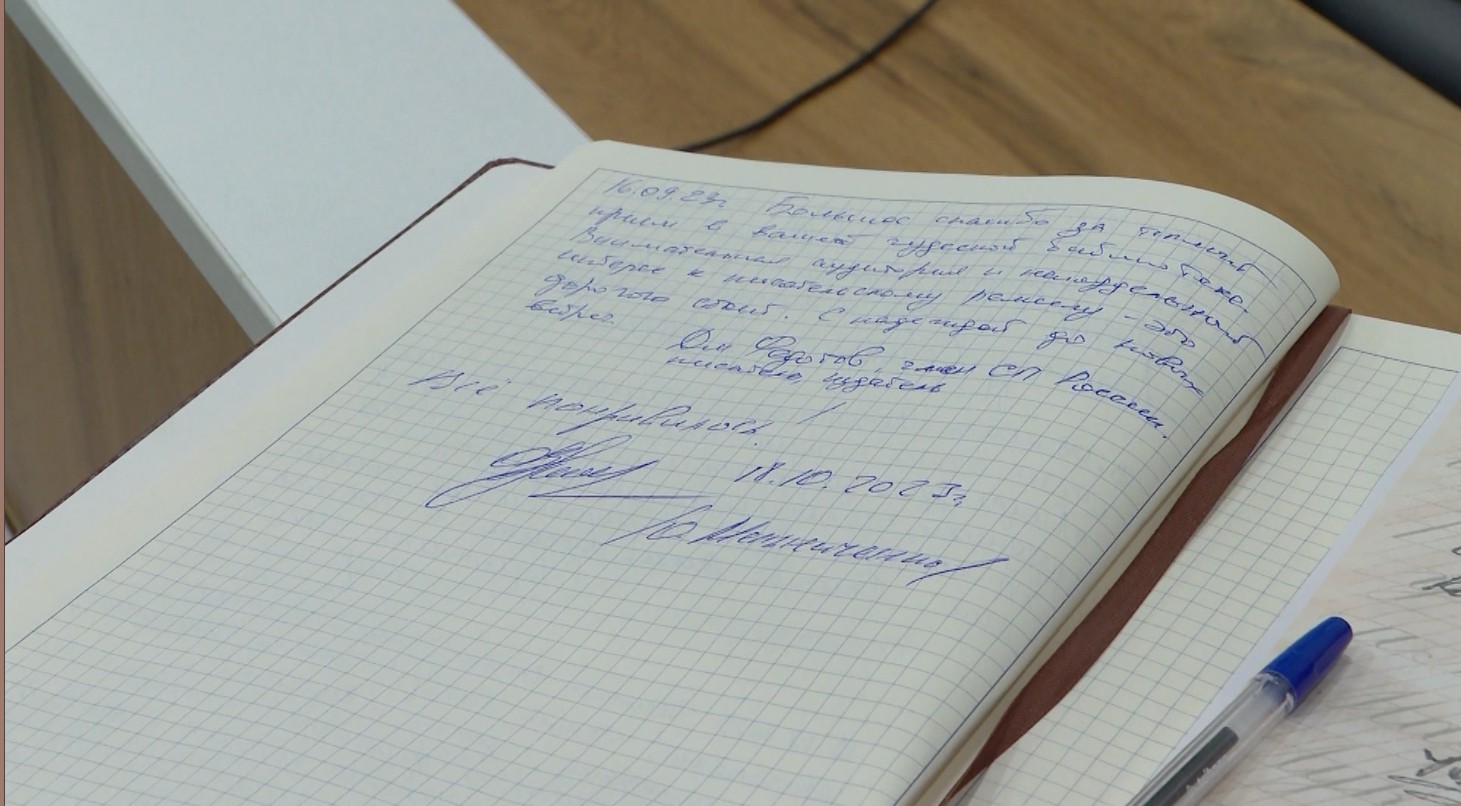 16.09.23г. Большое спасибо за теплый
прием в вашей чудесной библиотеке.
Внимательная аудитория и неподдельный
интерес к писательскому ремеслу - это
дорогого стоит. С надеждой до новых
встреч.
Федотов, член СП России,
писатель, издатель
Всё понравилось!
18.10.2023г.